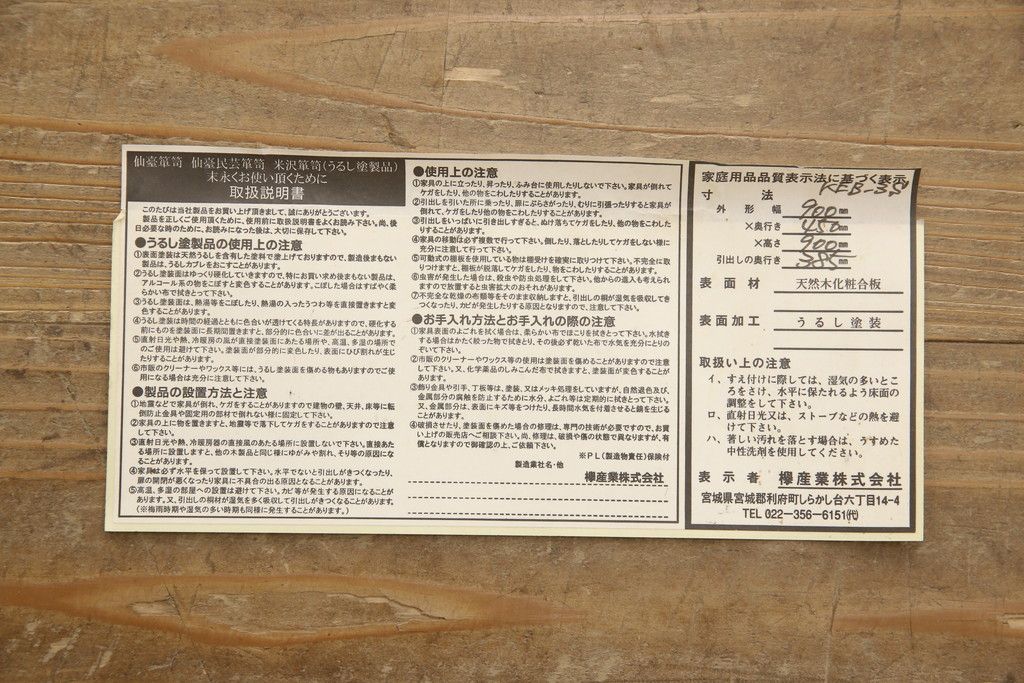 仙臺箪笥 仙臺民芸箪笥 米沢箪笥(うるし塗製品)
末永くお使い頂くために
取扱説明書
このたびは当社製品をお買い上げ頂きまして、誠にありがとうございます。
製品を正しくご使用頂くために、使用前に取扱説明書をよくお読み下さい。尚、後
日必要な時のために、お読みになった後は、大切に保存して下さい。
●うるし塗製品の使用上の注意
①表面塗装は天然うるしを含有した塗料で塗上げておりますので、製造後まもない
製品は、うるしカブレをおこすことがあります。
②うるし塗装面はゆっくり硬化していますので、特にお買い求め後まもない製品は、
アルコール系の物をこぼすと変色することがあります。こぼした場合はすばやく柔
らかい布で拭きとって下さい。
③うるし塗装面は、熱湯等をこぼしたり、熱湯の入ったうつわ等を直接置きますと変
色することがあります。
④うるし塗装は時間の経過とともに色合いが透けてくる特長がありますので、硬化する
前にものを塗装面に長期間置きますと、部分的に色合いに差が出ることがあります。
⑤直射日光や熱、冷暖房の風が直接塗装面にあたる場所や、高温、多湿の場所で
のご使用は避けて下さい。塗装面が部分的に変色したり、表面にひび割れが生じ
たりすることがあります。
⑥市販のクリーナーやワックス等には、うるし塗装面を傷める物もありますのでご使
用になる場合は充分に注意して下さい。
●製品の設置方法と注意
①地震などで家具が倒れ、ケガをすることがありますので建物の壁、天井、床等に転
倒防止金具や固定用の部材で倒れない様に固定して下さい。
②家具の上に物を置きますと、地震等で落下してケガをすることがありますので注意
して下さい。
③直射日光や熱、冷暖房器の直接風のあたる場所に設置しないで下さい。直接あた
る場所に設置しますと、他の木製品と同じ様にゆがみや割れ、そり等の原因にな
ることがあります。
④家具は必ず水平を保って設置して下さい。水平でないと引出しがきつくなったり、
扉の開閉が悪くなったり家具に不具合の出る原因となることがあります。
⑤高温、多湿の部屋への設置は避けて下さい。カビ等が発生する原因になることが
あります。又、引出しの桐材が湿気を多く吸収して引出しがきつくなることがあります。
(※梅雨時期や湿気の多い時期も同様に発生することがあります。)
●使用上の注意
①家具の上に立ったり、昇ったり、ふみ台に使用したりしないで下さい。家具が倒れて
ケガをしたり、他の物をこわしたりすることがあります。
②引出しを引いた所に乗ったり、扉にぶらさがったり、むりに引張ったりすると家具が
倒れて、ケガをしたり他の物をこわしたりすることがあります。
③引出しをいっぱいに引き出しすぎると、ぬけ落ちてケガをしたり、他の物をこわした
りすることがあります。
④家具の移動は必ず複数で行って下さい。倒したり、落としたりしてケガをしない様に
充分に注意して行って下さい。
⑤可動式の棚板を使用している物は棚受けを確実に取りつけて下さい。不完全に取
りつけますと、棚板が脱落してケガをしたり、物をこわしたりすることがあります。
⑥虫害が発生した場合は、殺虫や防虫処理をして下さい。他からの進入も考えられま
すので放置すると虫害拡大のおそれがあります。
⑦不完全な乾燥の布類等をそのまま収納しますと、引出しの桐が湿気を吸収してき
つくなったり、カビが発生したりする原因となりますので、注意して下さい。
●お手入れ方法とお手入れの際の注意
①家具表面のよごれを拭く場合は、柔らかい布でほこりを拭きとって下さい。水拭き
する場合はかたく絞った物で拭きとり、その後必ず乾いた布で水気を充分にとりの
ぞいて下さい。
②市販のクリーナーやワックス等の使用は塗装面を傷めることがありますので注意
して下さい。又、化学薬品のしみこんだ布で拭きますと、塗装面が変色することが
あります。
③飾り金具や引手、丁板等は、塗装、又はメッキ処理をしていますが、自然退色及び、
金属部分の腐蝕を防止するために水分、よごれ等は定期的に拭きとって下さい。
又、金属部分は、表面にキズ等をつけたり、長時間水気を付着させると錆を生じる
ことがあります。
④破損させたり、塗装面を傷めた場合の修理は、専門の技術が必要ですので、お買
い上げの販売店へご相談下さい。尚、修理は、破損や傷の状態で異なりますが、有
償となりますので御確認の上、ご依頼下さい。
※PL(製造物責任)保険付
製造業社名・他
欅産業株式会社
家庭用品品質表示法に基づく表示
KEB-38
寸法
外形幅 900mm
×奥行き 450mm
×高さ 900mm
引出しの奥行き 385mm
表面材 天然木化粧合板
表面加工 うるし塗装
取扱い上の注意
イ、すえ付けに際しては、湿気の多いとこ
ろをさけ、水平に保たれるよう床面の
調整をして下さい。
ロ、直射日光又は、ストーブなどの熱を避
けて下さい。
ハ、著しい汚れを落とす場合は、うすめた
中性洗剤を使用してください。
表示者 欅産業株式会社
宮城県宮城郡利府町しらかし台六丁目14-4
TEL 022-356-6151㈹